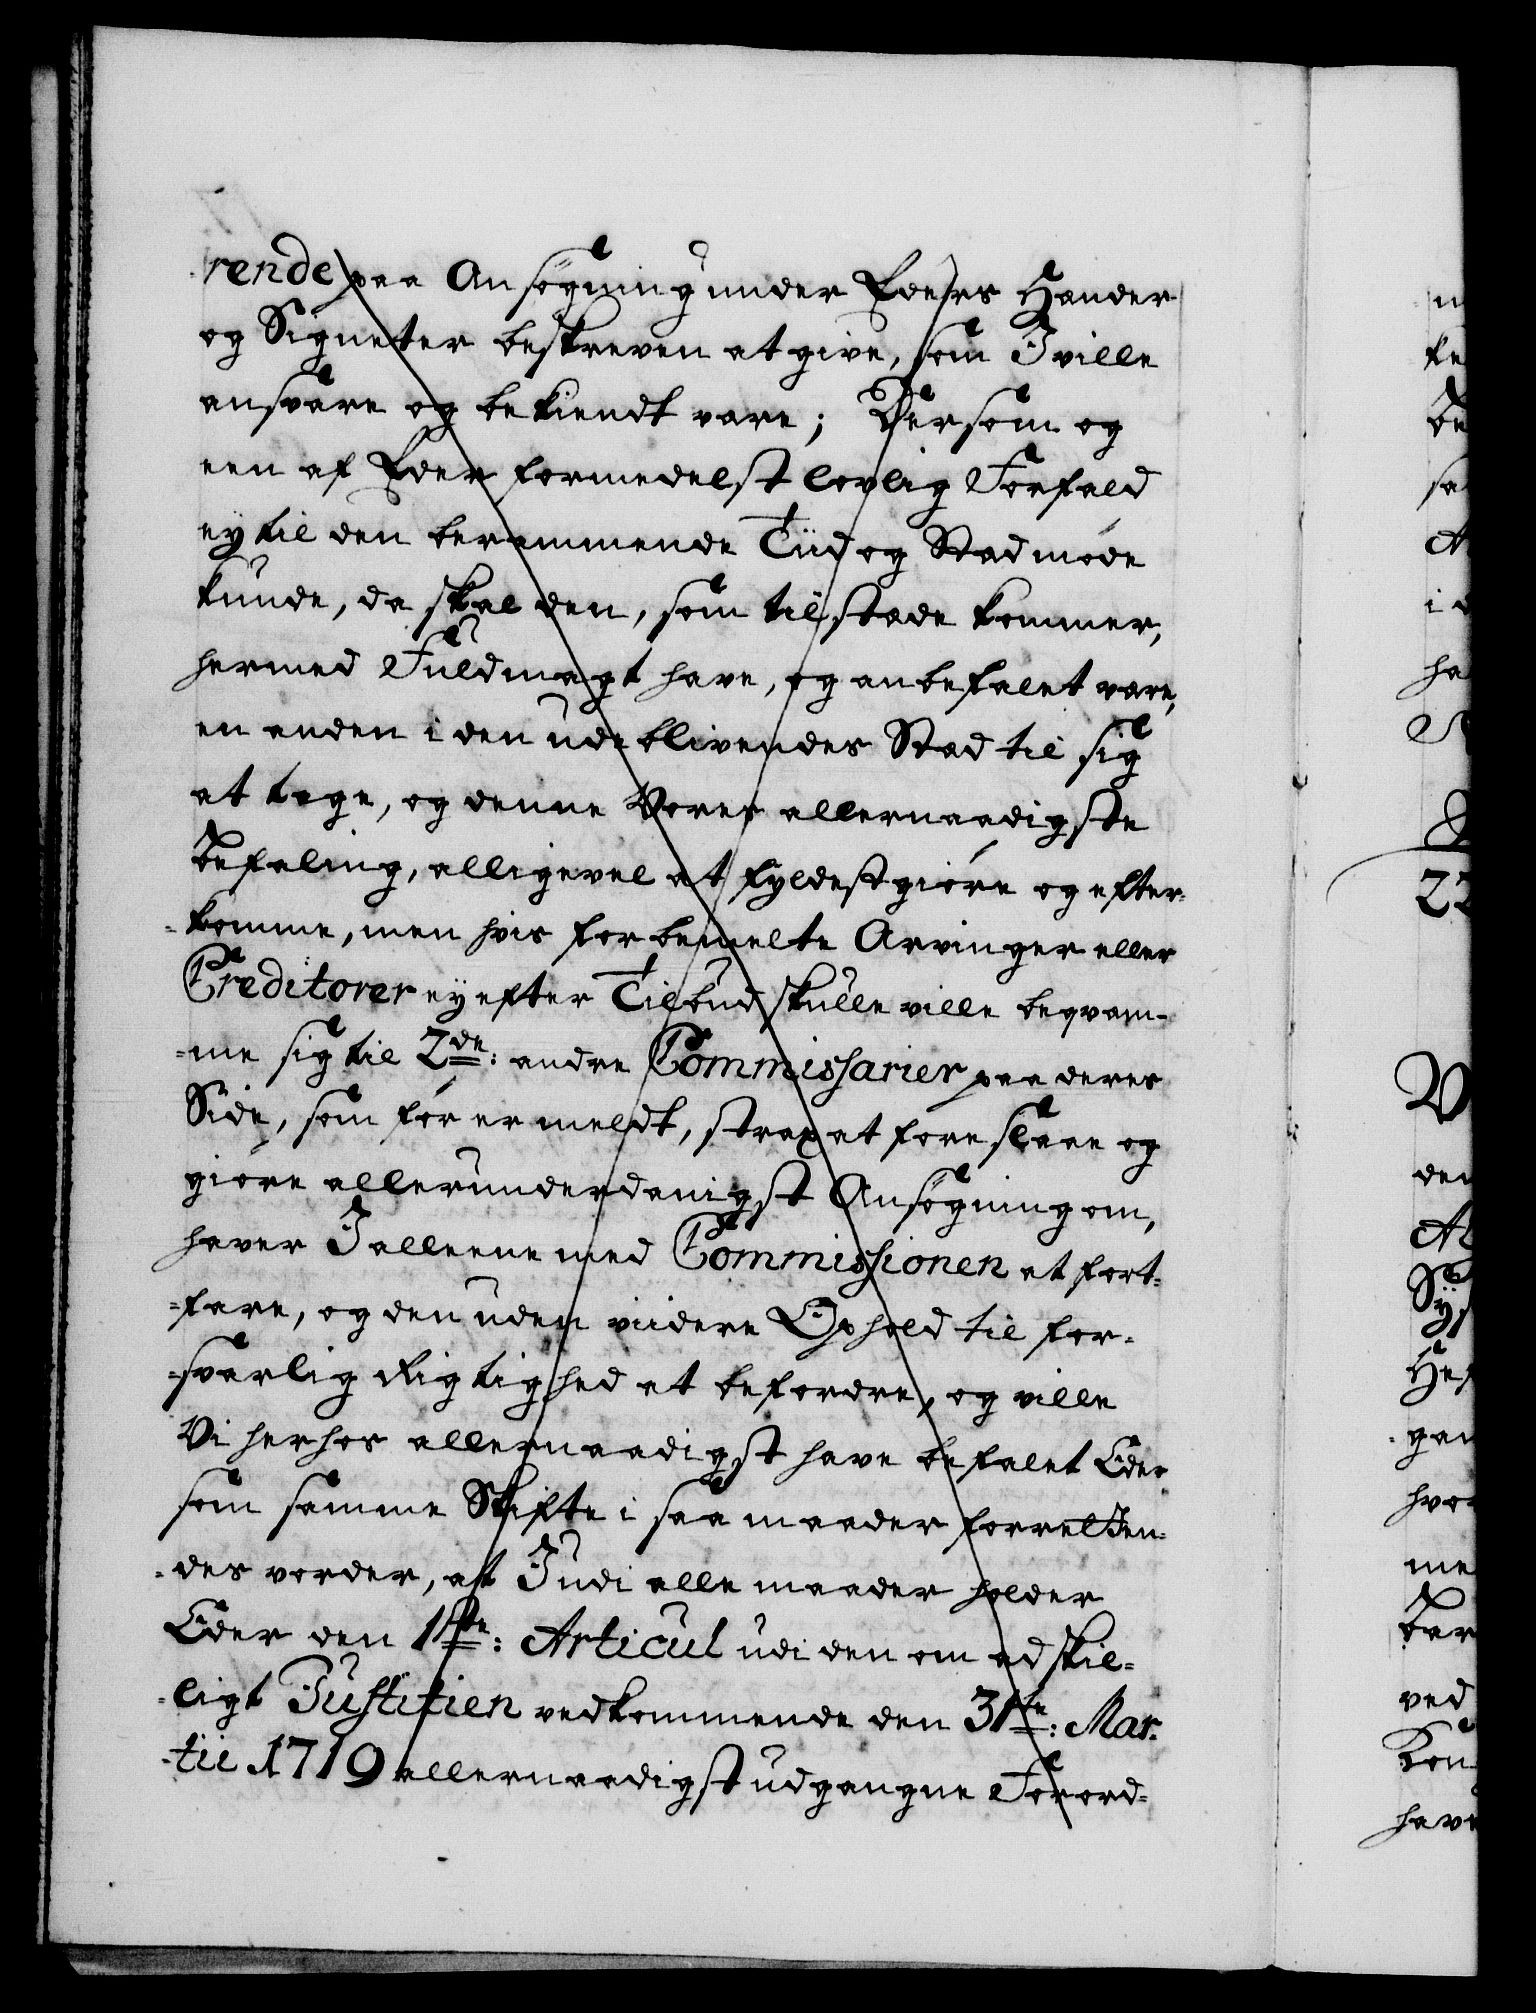 rende paa Ansøgning under Eders Hænder
og Signeter beskreven at give, som I ville
ansvare og bekiendt være; Dersom og
een af Eder formedelst lovlig Forfald
ey til den berammende Tiid og Stad møde
kunde, da skal den, som tilstæde kommer,
hermed Fuldmagt have, og anbefalet være,
en anden i den udeblivendes Stad til sig
at tage, og denne Vores allernaadigste
Befaling, alligevel at fyldestgiøre og efter-
-komme, men hvis forbemelte Arvinger eller
Creditorer ey efter Tilbud skulle ville beqvem-
-me sig til 2de: andre Commissarier paa deres
Side, som før er meldt, strax at foreslaae og
giøre allerunderdanigst Ansøgning om,
haver I alleene med Commissionen at fort-
-fare, og den uden viidere Ophold til for-
-svarlig Rigtighed at befordre, og ville
Vi herhos allernaadigst have befalet Eder
som samme Skifte i saa maader forretten-
-des vorder, at I udi alle maader holder
Eder den 1ste: Articul udi den om adskil-
-ligt Justitien vedkommende den 31te: Mar-
-tii 1719 allernaadigst udgangne Forord-